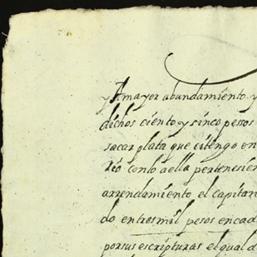 y Amayor abundamiento y
dichos ciento y sinco pesos
sacar plata que el tengo en
rio con lo a ella pertenesien
arrendamiento el capitan
do entresmil pesos encad
por sus escripturas el qual d